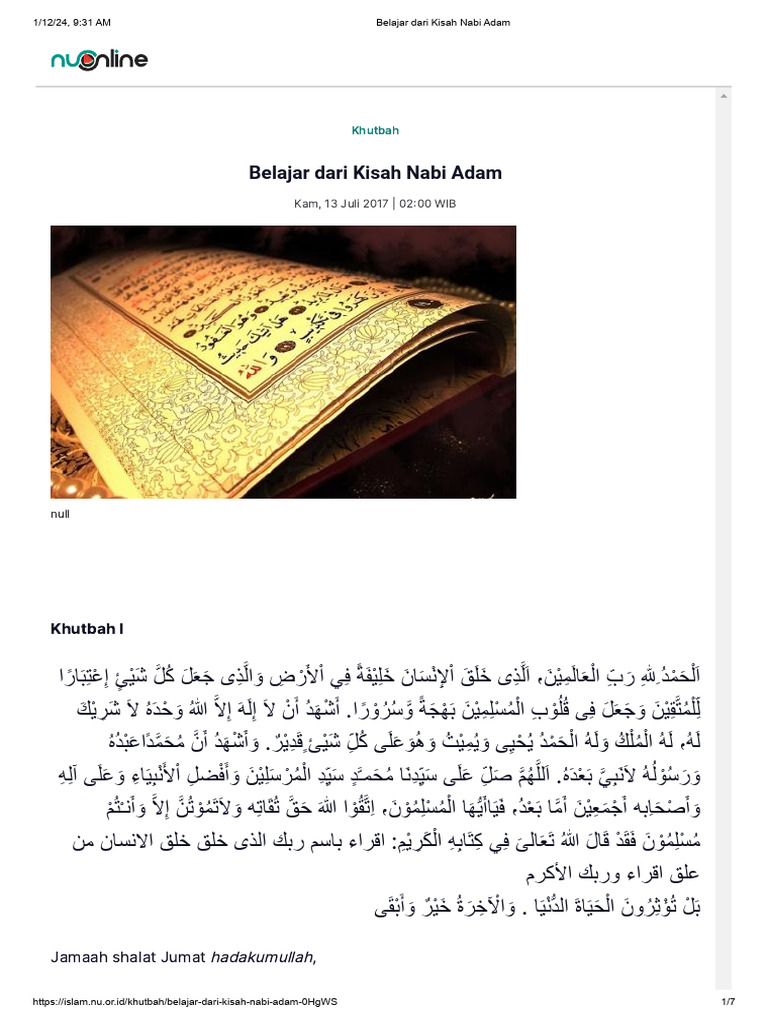 1/12/24, 9:31 AM
Belajar dari Kisah Nabi Adam
nuonline
Khutbah
Belajar dari Kisah Nabi Adam
Kam, 13 Juli 2017 | 02:00 WIB
null
Khutbah I
اَلْحَمْدُ ِللهِ رَبِّ الْعَالَمِيْنَ، اَلَّذِى خَلَقَ اْلإِنْسَانَ خَلِيْفَةً فِي اْلأَرْضِ وَالَّذِى جَعَلَ كُلَّ شَيْئٍ إِعْتِبَارًا
لِّلْمُتَّقِيْنَ وَجَعَلَ فِى قُلُوْبِ الْمُسْلِمِيْنَ بَهْجَةً وَّسُرُوْرًا. أَشْهَدُ أَنْ لاَ إِلَهَ إِلاَّ اللهُ وَحْدَهُ لاَ شَرِيْكَ
لَهُ، لَهُ الْمُلْكُ وَلَهُ الْحَمْدُ يُحْيِى وَيُمِيْتُ وَهُوَعَلَى كُلِّ شَيْئٍ قَدِيْرٌ. وَأَشْهَدُ أَنَّ مُحَمَّدًاعَبْدُهُ
وَرَسُوْلُهُ لاَنَبِيَّ بَعْدَهُ. اَللَّهُمَّ صَلِّ عَلَى سَيِّدِنَا مُحَمَّدٍ سَيِّدِ الْمُرْسَلِيْنَ وَأَفْضَلِ اْلأَنْبِيَاءِ وَعَلَى آلِهِ
وَأَصْحَابِه أَجْمَعِيْنَ أَمَّا بَعْدُ، فَيَاأَيُّهَا الْمُسْلِمُوْنَ، اِتَّقُوْا اللهَ حَقَّ تُقَاتِه وَلاَتَمُوْتُنَّ إِلاَّ وَأَنـْتُمْ
مُسْلِمُوْنَ فَقَدْ قَالَ اللهُ تَعَالىَ فِي كِتَابِهِ الْكَرِيْمِ: اقراء باسم ربك الذى خلق خلق الانسان من
علق اقراء وربك الأكرم
بَلْ تُؤْثِرُونَ الْحَيَاةَ الدُّنْيَا . وَالْآخِرَةُ خَيْرٌ وَأَبْقَى
Jamaah shalat Jumat hadakumullah,
https://islam.nu.or.id/khutbah/belajar-dari-kisah-nabi-adam-0HgWS
1/7